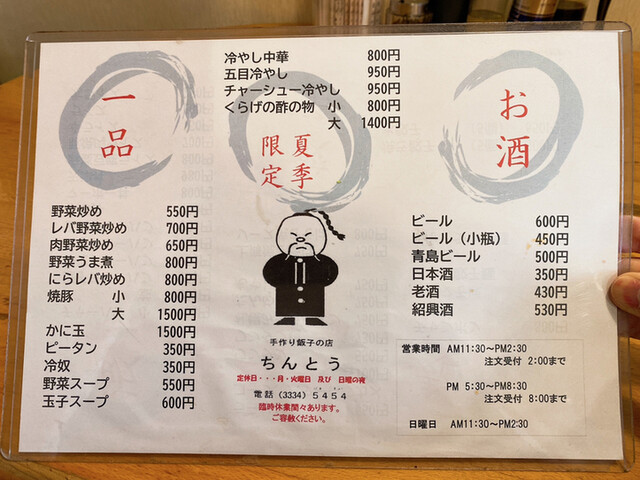 一品
野菜炒め 550円
レバ野菜炒め 700円
肉野菜炒め 650円
野菜うま煮 800円
にらレバ炒め 800円
焼豚 小 800円
大 1500円
かに玉 1500円
ピータン 350円
冷奴 350円
野菜スープ 550円
玉子スープ 600円
冷やし中華 800円
五目冷やし 950円
チャーシュー冷やし 950円
くらげの酢の物 小 800円
大 1400円
夏季
限定
手作り飯子の店
ちんとう
定休日・・・月・火曜日 及び 日曜の夜
電話 (3334) 5454
臨時休業間々あります。
ご容赦ください。
お酒
ビール 600円
ビール（小瓶） 450円
青島ビール 500円
日本酒 350円
老酒 430円
紹興酒 530円
営業時間 AM11:30～PM2:30
注文受付 2:00まで
PM 5:30～PM8:30
注文受付 8:00まで
日曜日 AM11:30～PM2:30